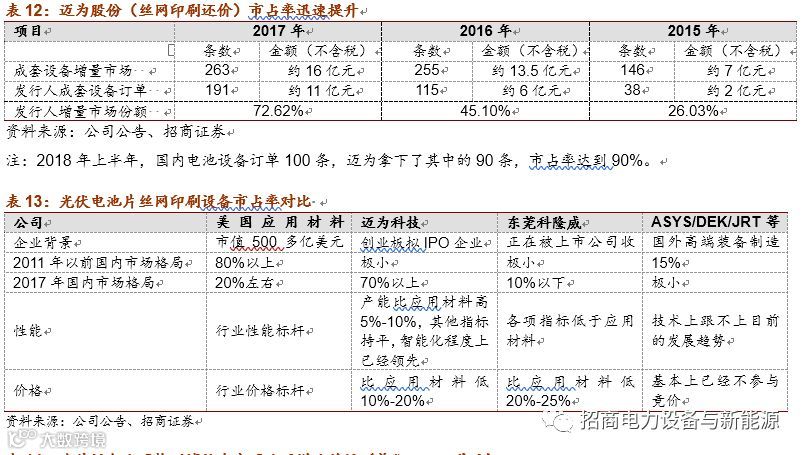 表 12：迈为股份（丝网印刷还价）市占率迅速提升
项目 2017 年 2016 年 2015 年
条数 金额（不含税） 条数 金额（不含税） 条数 金额（不含税）
成套设备增量市场 263 约 16 亿元 255 约 13.5 亿元 146 约 7 亿元
发行人成套设备订单 191 约 11 亿元 115 约 6 亿元 38 约 2 亿元
发行人增量市场份额 72.62% 45.10% 26.03%
资料来源：公司公告、招商证券
注：2018 年上半年，国内电池设备订单 100 条，迈为拿下了其中的 90 条，市占率达到 90%。
表 13：光伏电池片丝网印刷设备市占率对比
公司 美国应用材料 迈为科技 东莞科隆威 ASYS/DEK/JRT 等
企业背景 市值 500 多亿美元 创业板拟 IPO 企业 正在被上市公司收 国外高端装备制造
2011 年以前国内市场格局 80%以上 极小 极小 15%
2017 年国内市场格局 20%左右 70%以上 10%以下 极小
性能 行业性能标杆 产能比应用材料高 5%-10%，其他指标持平，智能化程度上已经领先 各项指标低于应用材料 技术上跟不上目前的发展趋势
价格 行业价格标杆 比应用材料低 10%-20% 比应用材料低 20%-25% 基本上已经不参与竞价
资料来源：公司公告、招商证券
招商电力设备与新能源
大数跨境